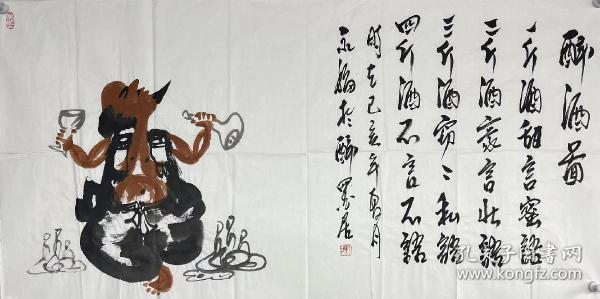 醉酒图
一斤酒甜言蜜語
二斤酒豪言壮語
三斤酒窃〻私語
四斤酒不言不語
時在己亥年
永福於醉墨居
孔夫子旧书网
www.kongfz.com